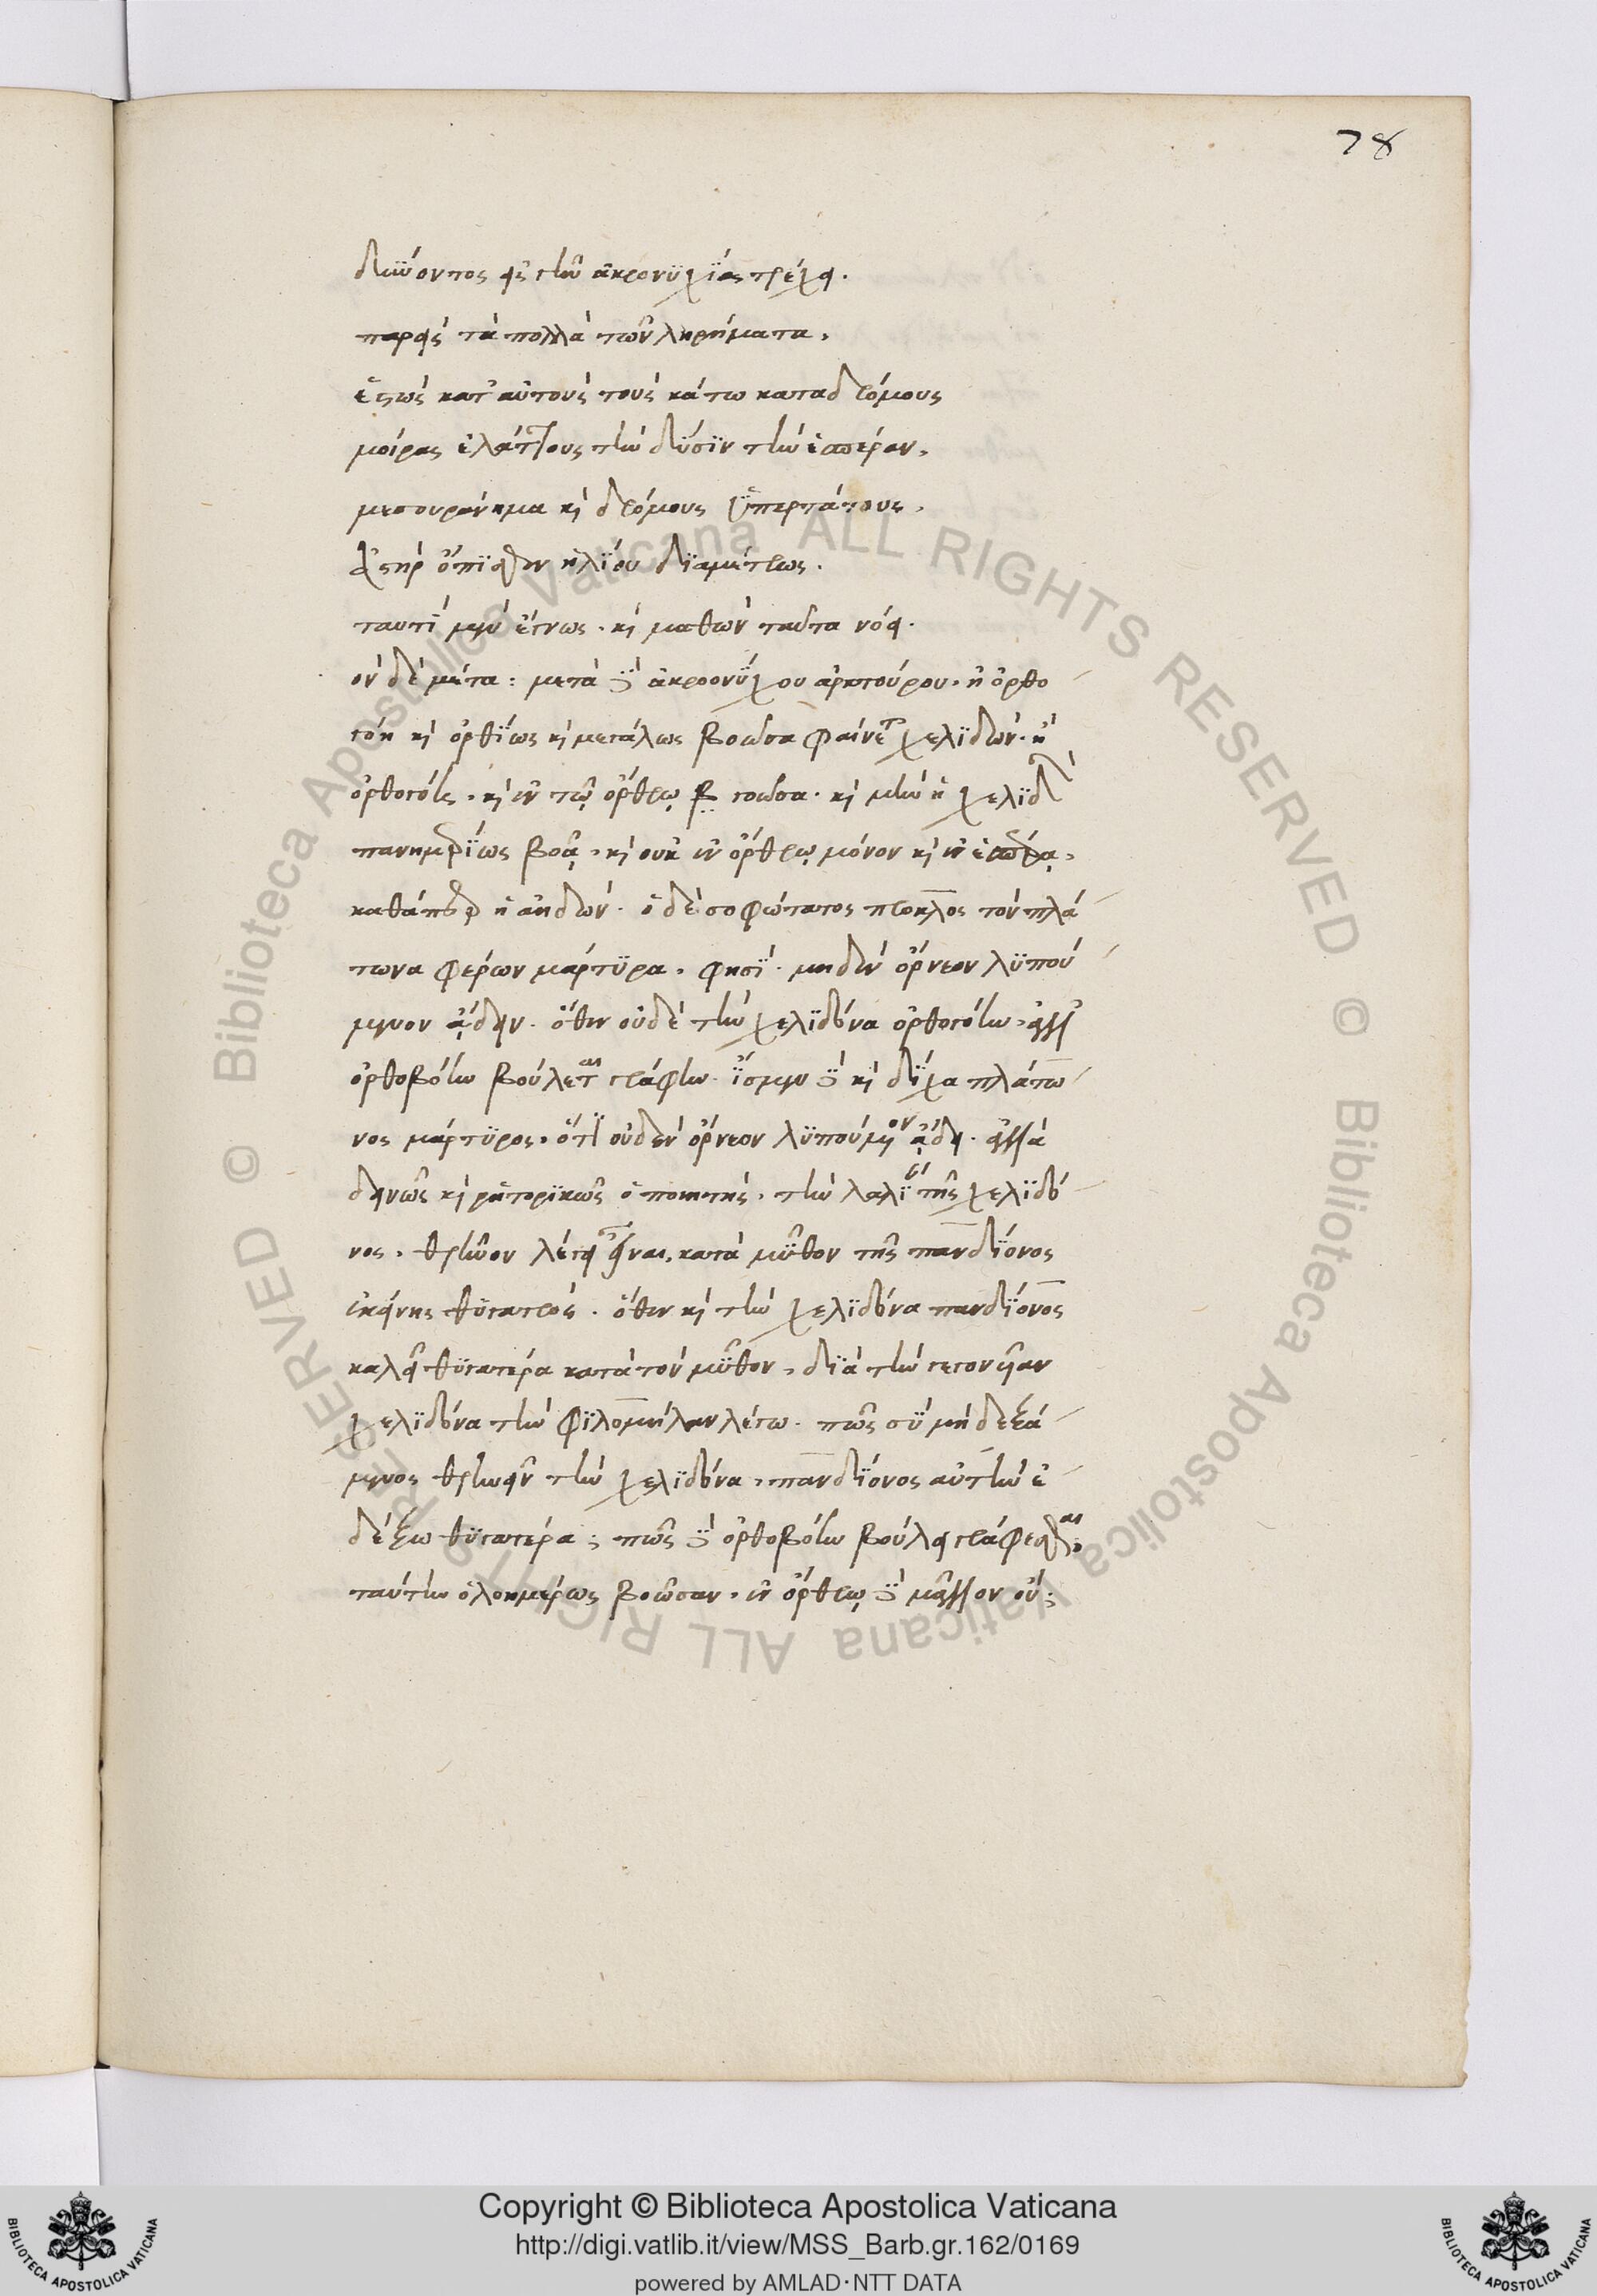 δύνοντος εἰς τὴν ἀκρονυχίας τρέχει.
παρεὶς τὰ πολλὰ τῶν ληρήματα.
ἔγνως κατ' αὐτοὺς τοὺς κάτω καταδρόμους
μοίρας ἐλάττους τὴν δύσιν τὴν ἑσπέραν.
μεσουράνημα καὶ δρόμους ὑπερτάτους.
ἀστὴρ ὄπισθεν ἡλίου διαμέτρως.
ταυτὶ μὲν ἔγνως. καὶ μαθὼν ταῦτα νόει.
ὃν δὲ μέτα: μετὰ δὲ ἀκροονύχου ἀρκτούρου. ἡ ὀρθο
γόη καὶ ὀρθίως καὶ μεγάλως βοῶσα φαίνεται χελιδών. ἢ
ὀρθογόης. καὶ ἐν τῷ ὄρθρῳ γοῶσα. καὶ μὴν ἡ χελιδὼν
πανημερίως βοᾷ. καὶ οὐκ ἐν ὄρθρῳ μόνον καὶ ἐν ἑσπέρᾳ.
καθάπερ ἡ ἀηδών. ὁ δὲ σοφώτατος πρόκλος τὸν πλά
τωνα φέρων μάρτυρα. φησὶ. μηδὲν ὄρνεον λυπού
μενον ᾄδειν. ὅθεν οὐδὲ τὴν χελιδόνα ὀρθογόην. ἀλλ'
ὀρθοβόην βούλεται γράφειν. ἴσμεν δὲ καὶ δίχα πλάτω
νος μάρτυρος. ὅτι οὐδὲν ὄρνεον λυπούμενον ᾄδει. ἀλλὰ
δεινῶς καὶ ῥητορικῶς ὁ ποιητὴς. τὴν λαλιὰν τῆς χελιδό
νος. θρῆνον λέγει εἶναι. κατὰ μῦθον τῆς πανδίονος
ἐκείνης θυγατρός. ὅθεν καὶ τὴν χελιδόνα πανδίονος
καλεῖ θυγατέρα κατὰ τὸν μῦθον. διὰ τὴν γεγονυῖαν
χελιδόνα τὴν φιλομήλαν λέγω. πῶς σὺ μὴ δεξά
μενος θρηνεῖν τὴν χελιδόνα. πανδίονος αὐτὴν ἐ
δέξω θυγατέρα; πῶς δὲ ὀρθοβόην βούλει γράφεσθαι.
ταύτην ὁλοημέρως βοῶσαν. ἐν ὄρθρῳ δὲ μᾶλλον οὔ;
78
Copyright © Biblioteca Apostolica Vaticana
http://digi.vatlib.it/view/MSS_Barb.gr.162/0169
powered by AMLAD·NTT DATA